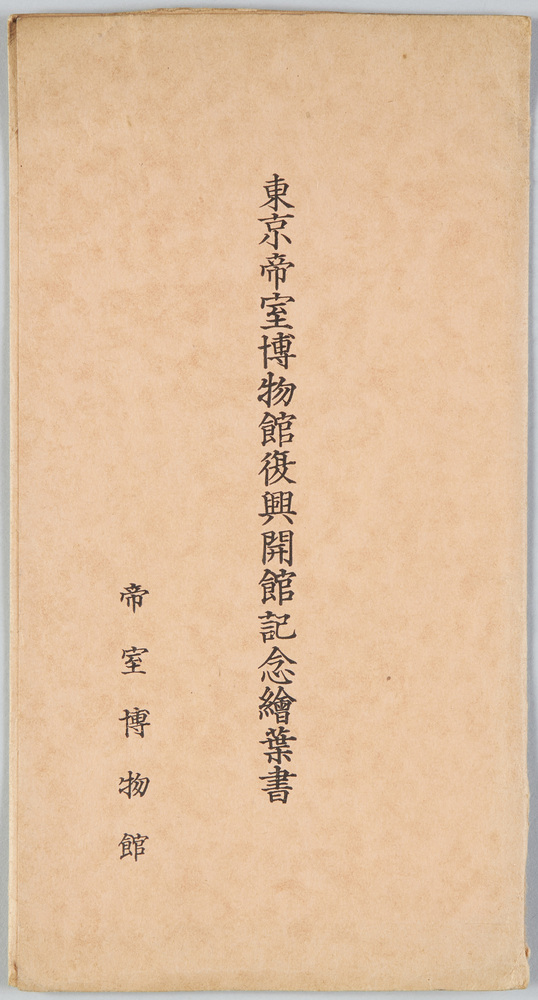 東京帝室博物館復興開館記念繪葉書
帝室博物館